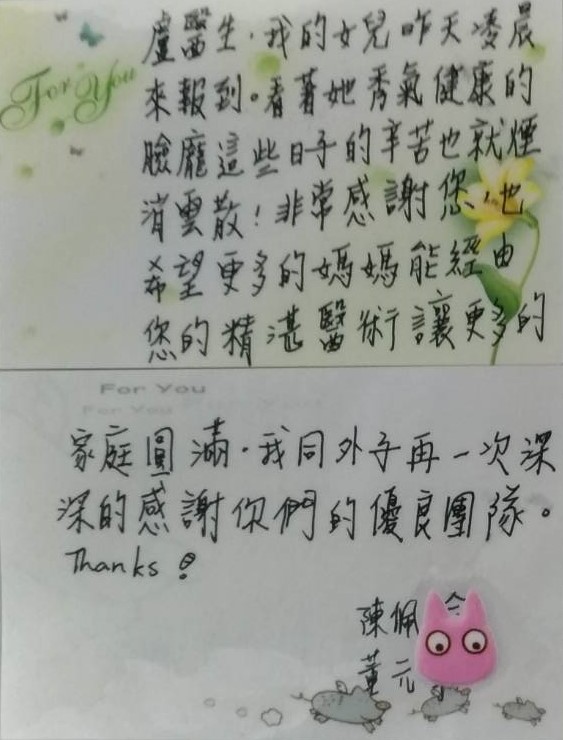 For You
盧醫生,我的女兒昨天凌晨
來報到。看著她秀氣健康的
臉龐這些日子的辛苦也就煙
消雲散!非常感謝您,也
希望更多的媽媽能經由
您的精湛醫術讓更多的
For You
For You
家庭圓滿,我同外子再一次深
深的感謝你們的優良團隊。
Thanks!
陳佩
董元